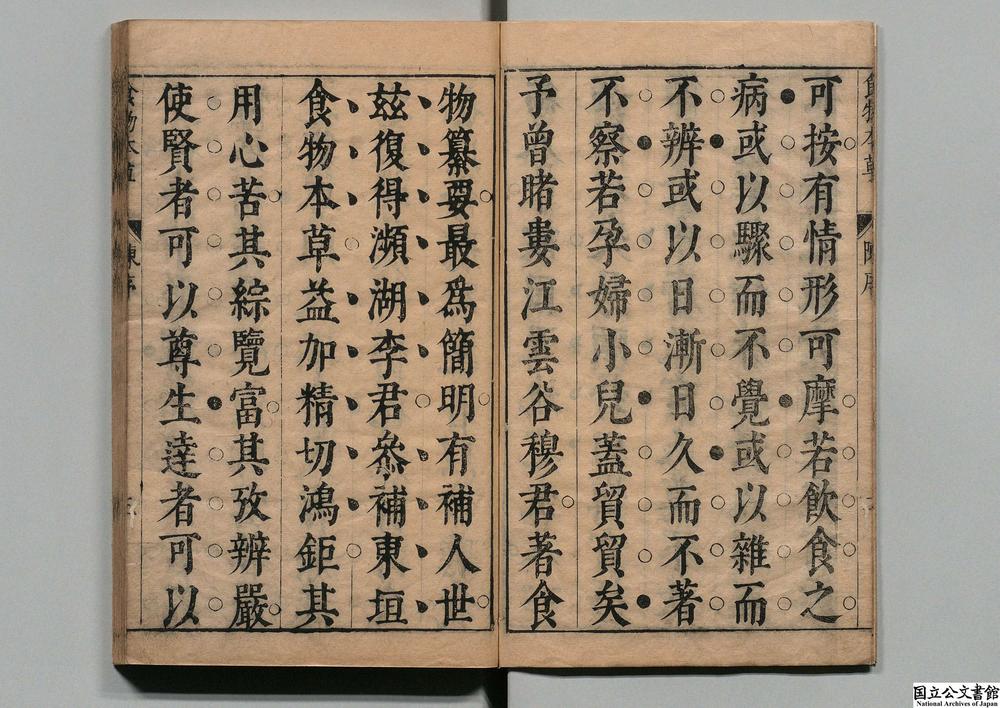 可按有情形可摩若飲食之
病或以驟而不覺或以雜而
不辨或以日漸日久而不著
不察若孕婦小兒蓋貿貿矣
予曾睹婁江雲谷穆君著食
物纂要最爲簡明有補人世
茲復得瀕湖李君叅補東垣
食物本草益加精切鴻鉅其
用心苦其綜覽富其攷辨嚴
使賢者可以尊生達者可以
国立公文書館
National Archives of Japan